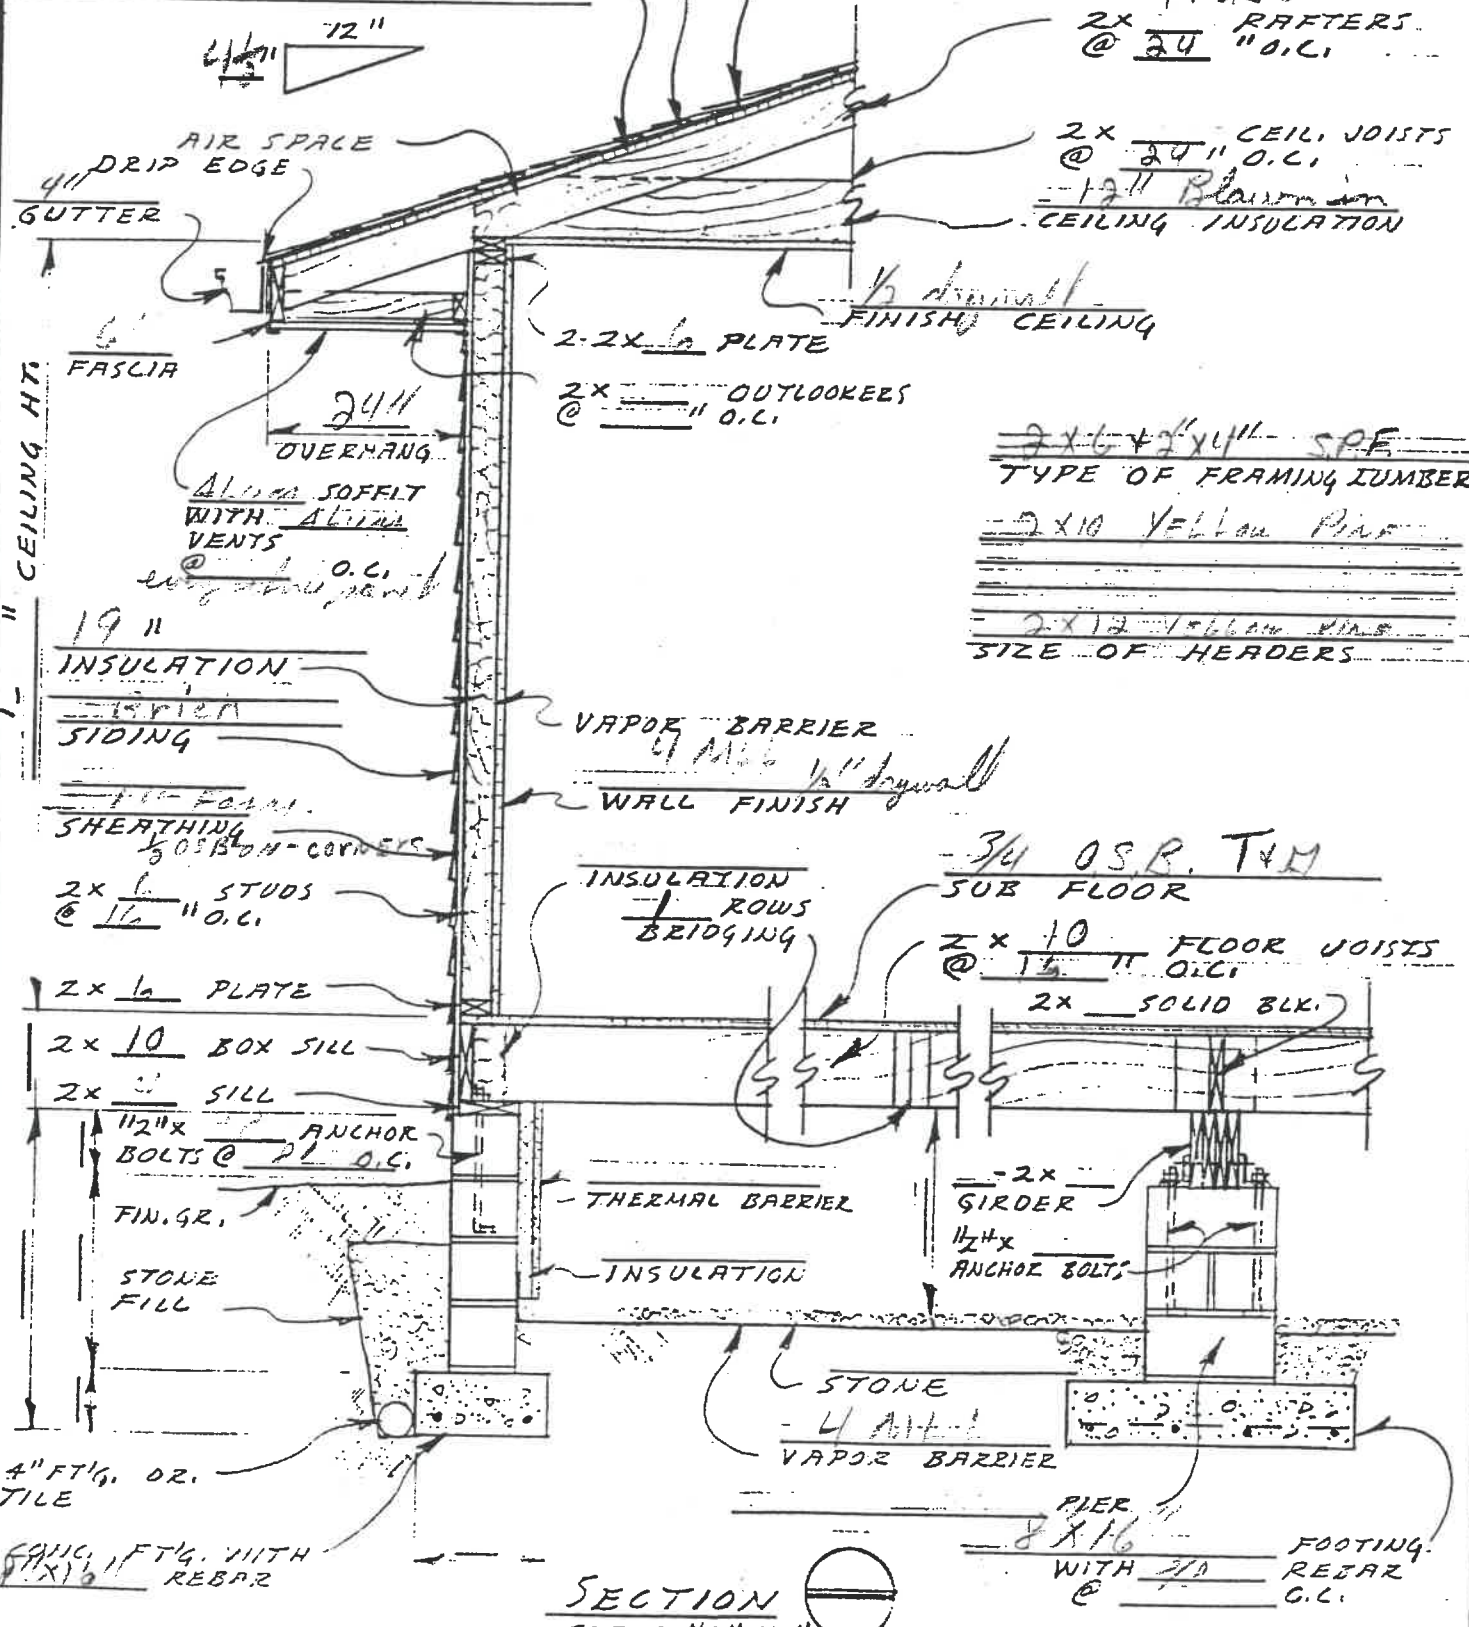 12"
4½"
2x ___ RAFTERS
@ 24 "O.C.
AIR SPACE
DRIP EDGE
4"
GUTTER
2x ___ CEIL. JOISTS
@ 24" O.C.
12" Blown in
CEILING INSULATION
½ drywall
FINISH CEILING
6"
FASCIA
2-2x 6 PLATE
2x ___ OUTLOOKERS
@ ___" O.C.
24"
OVERHANG
CEILING HT.
Alum SOFFIT
WITH Alum
VENTS
@ ___ O.C.
2x6 + 2"x4" S.P.F.
TYPE OF FRAMING LUMBER
2x10 Yellow Pine
2x12 Yellow Pine
SIZE OF HEADERS
19"
INSULATION
Brick
SIDING
VAPOR BARRIER
4 Mil
½" drywall
WALL FINISH
Foam
SHEATHING
½ OSB ON-CORNERS
2x 6 STUDS
@ 16 "O.C.
INSULATION
1 ROWS
BRIDGING
3/4 O.S.B. T&G
SUB FLOOR
2 x 10 FLOOR JOISTS
@ 16 " O.C.
2x ___ SOLID BLK.
2x 6 PLATE
2x 10 BOX SILL
2x ___ SILL
"2"x ___ ANCHOR
BOLTS @ ___ O.C.
FIN. GR.
THERMAL BARRIER
2x ___
GIRDER
"2"x ___
ANCHOR BOLTS
STONE
FILL
INSULATION
STONE
4 Mil
VAPOR BARRIER
4" FT'G. DR.
TILE
CONC. FT'G. WITH
REBAR
PIER
8 X 16"
WITH ___ FOOTING
REBAR
@ ___ O.C.
SECTION